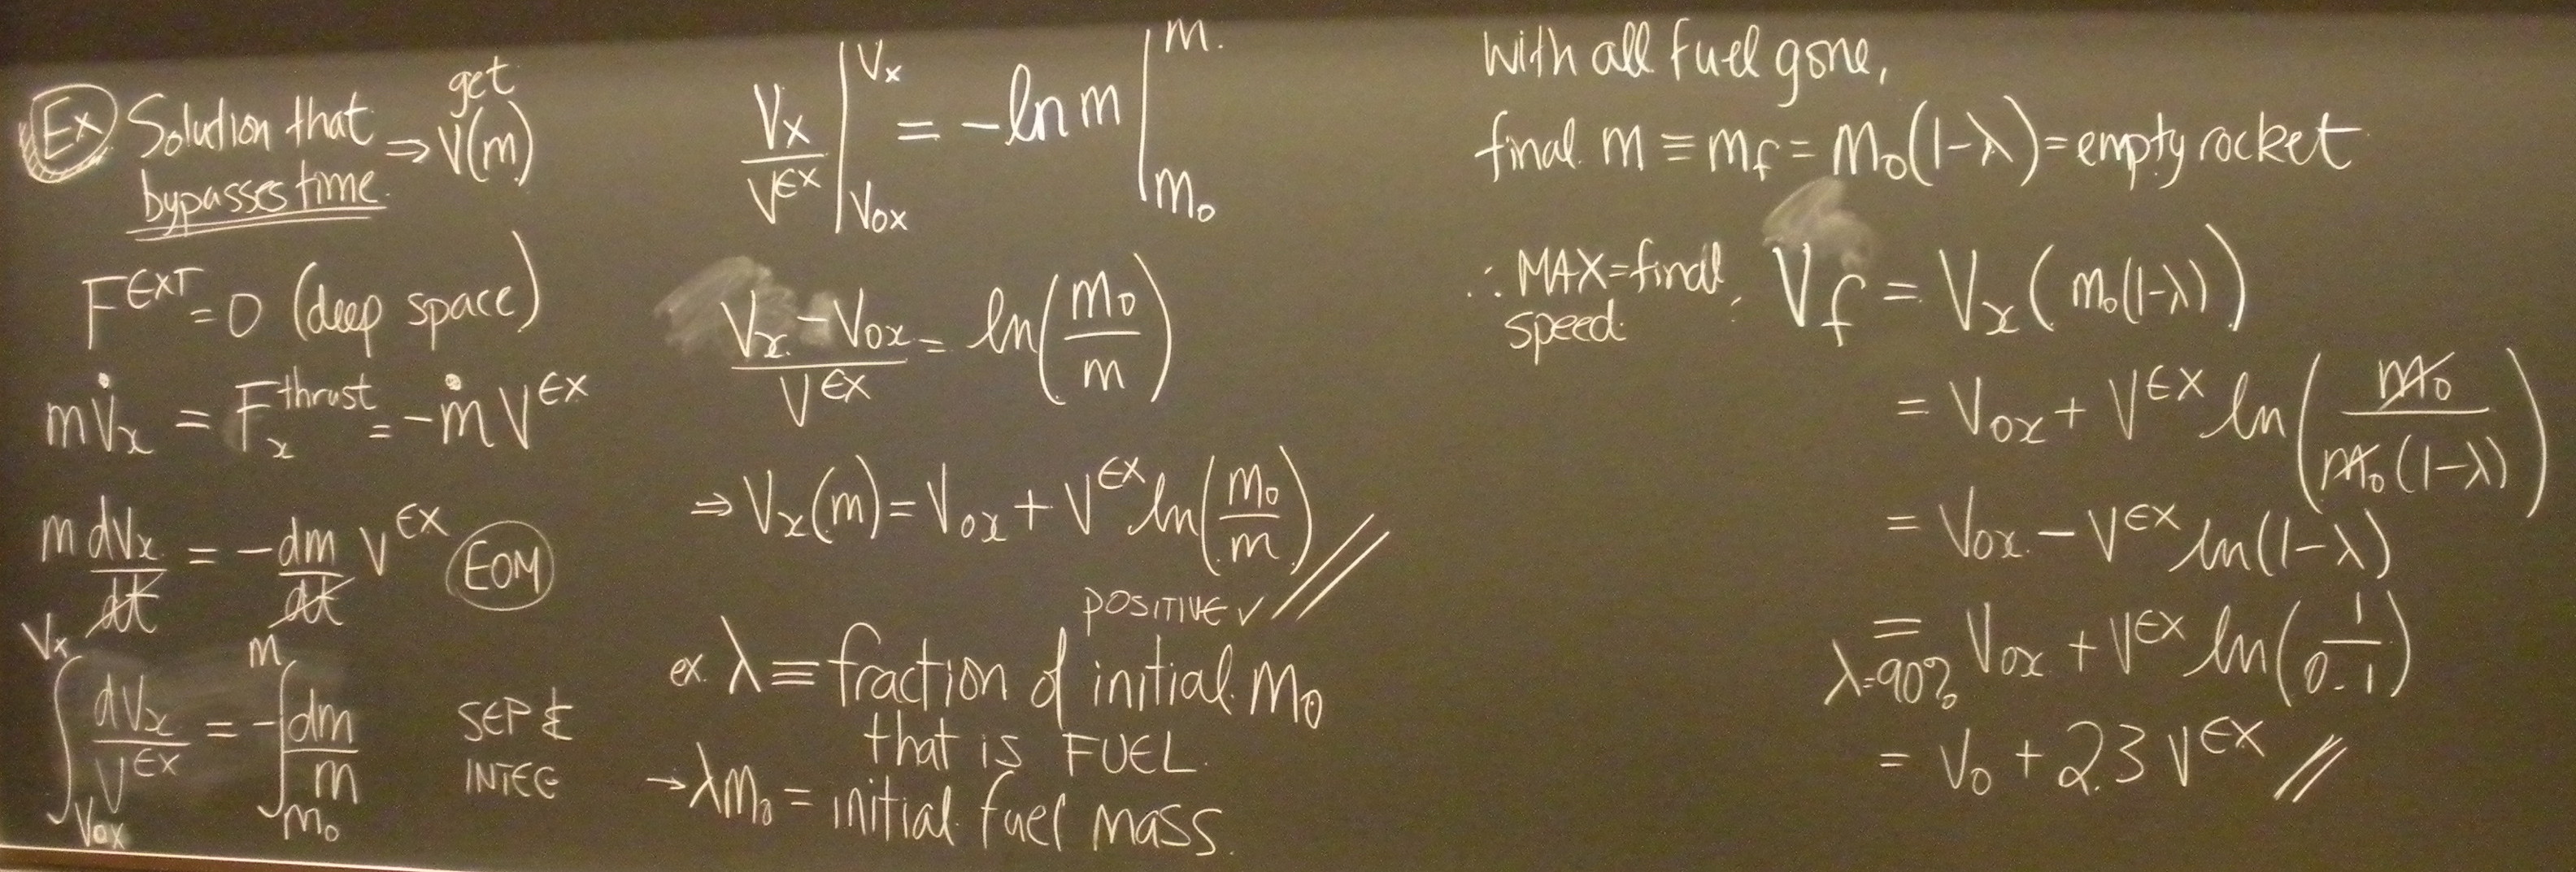 Ex Solution that bypasses time ⇒ get V(m)
F^EXT = 0 (deep space)
m V̇x = Fx^thrust = -ṁ V^EX
m dVx/dt = -dm/dt V^EX EOM
∫_Vox^Vx dVx/V^EX = -∫_mo^m dm/m SEP & INTEG
Vx/V^EX |_Vox^Vx = -ln m |_mo^m.
Vx - Vox / V^EX = ln(mo/m)
⇒ Vx(m) = Vox + V^EX ln(mo/m) //
POSITIVE ✓
ex. λ ≡ fraction of initial mo
that is FUEL.
→ λmo = initial fuel mass.
With all fuel gone,
final m ≡ mf = mo(1-λ) = empty rocket
∴ MAX = final speed. : Vf = Vx(mo(1-λ))
= Vox + V^EX ln(mo/mo(1-λ))
= Vox - V^EX ln(1-λ)
= λ=90% Vox + V^EX ln(1/0.1)
= Vo + 2.3 V^EX //